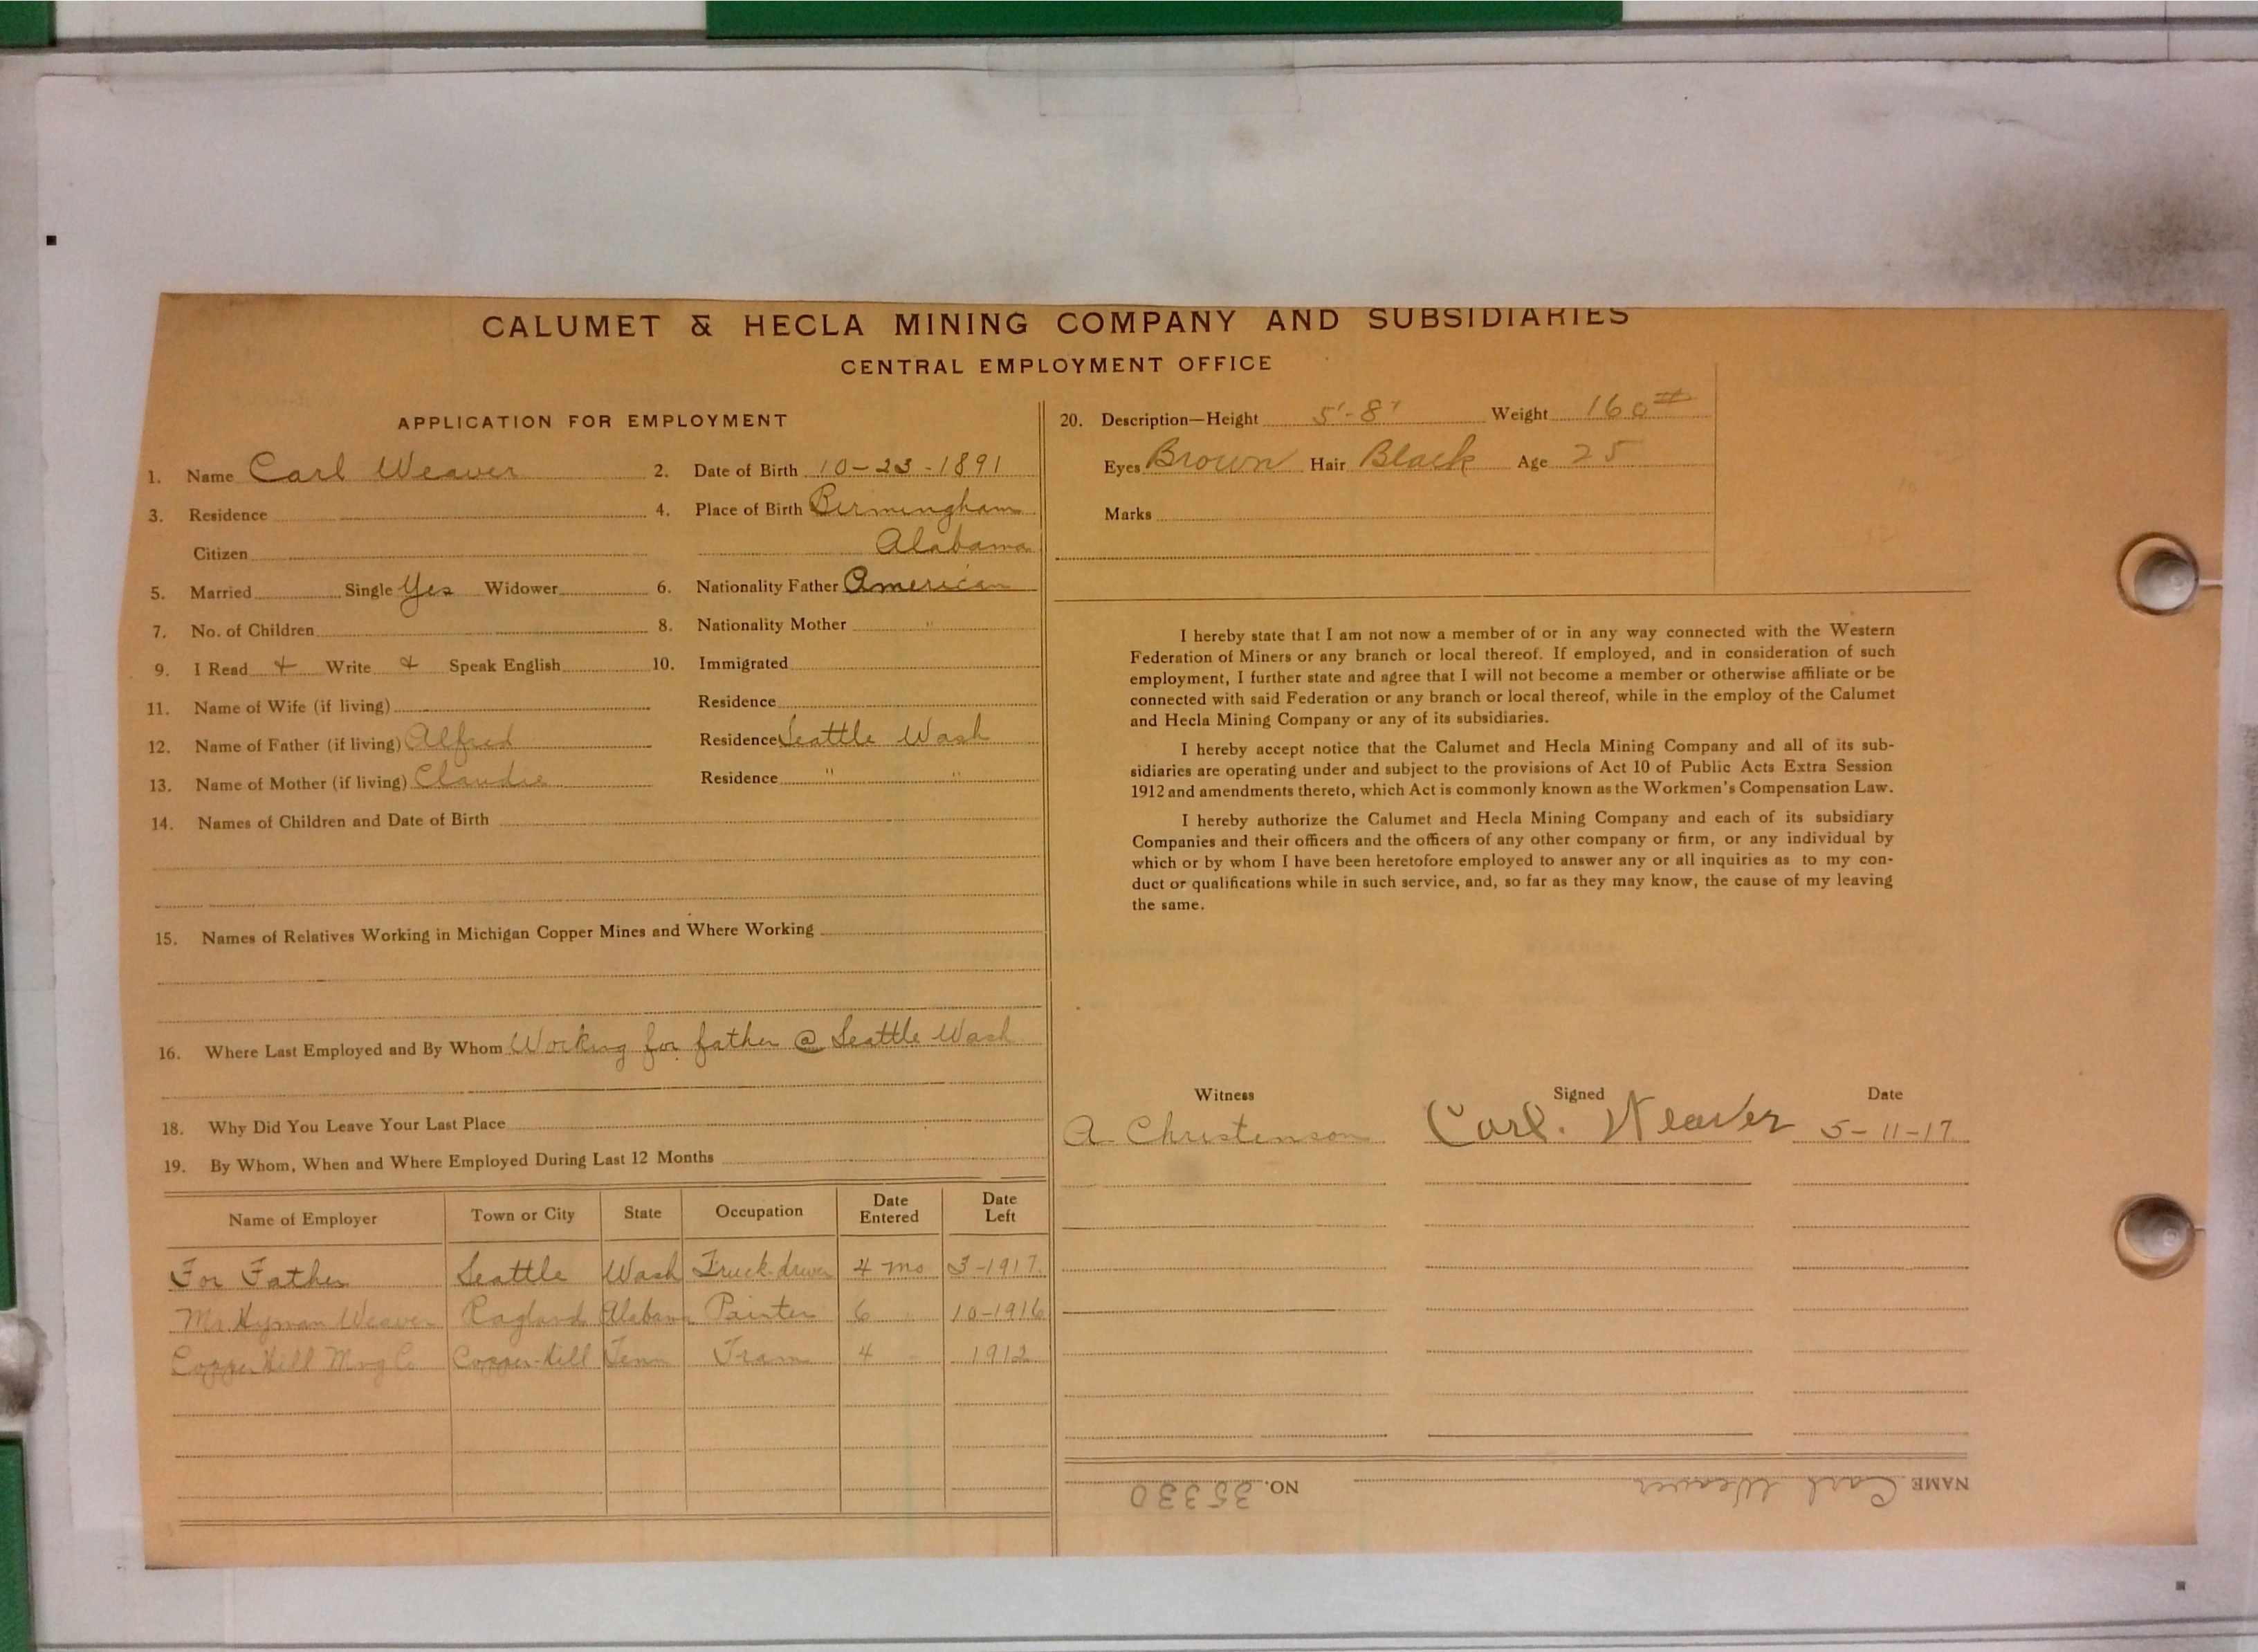 CALUMET & HECLA MINING COMPANY AND SUBSIDIARIES
CENTRAL EMPLOYMENT OFFICE
APPLICATION FOR EMPLOYMENT
1. Name Carl Weaver 2. Date of Birth 10-23-1891
3. Residence 4. Place of Birth Birmingham
Citizen Alabama
5. Married Single Yes Widower 6. Nationality Father American
7. No. of Children 8. Nationality Mother "
9. I Read + Write + Speak English 10. Immigrated
11. Name of Wife (if living) Residence
12. Name of Father (if living) Alfred Residence Seattle Wash
13. Name of Mother (if living) Claudie Residence " "
14. Names of Children and Date of Birth
15. Names of Relatives Working in Michigan Copper Mines and Where Working
16. Where Last Employed and By Whom Working for father @ Seattle Wash
18. Why Did You Leave Your Last Place
19. By Whom, When and Where Employed During Last 12 Months
Name of Employer Town or City State Occupation Date Entered Date Left
For Father Seattle Wash Truck-driver 4 mo 3-1917
Mr. Hyman Weaver Ragland Alabama Painter 6 " 10-1916
Copper Hill Mng Co Copper-Hill Tenn Tram 4 " 1912
20. Description—Height 5'-8" Weight 160#
Eyes Brown Hair Black Age 25
Marks
I hereby state that I am not now a member of or in any way connected with the Western
Federation of Miners or any branch or local thereof. If employed, and in consideration of such
employment, I further state and agree that I will not become a member or otherwise affiliate or be
connected with said Federation or any branch or local thereof, while in the employ of the Calumet
and Hecla Mining Company or any of its subsidiaries.
I hereby accept notice that the Calumet and Hecla Mining Company and all of its sub-
sidiaries are operating under and subject to the provisions of Act 10 of Public Acts Extra Session
1912 and amendments thereto, which Act is commonly known as the Workmen's Compensation Law.
I hereby authorize the Calumet and Hecla Mining Company and each of its subsidiary
Companies and their officers and the officers of any other company or firm, or any individual by
which or by whom I have been heretofore employed to answer any or all inquiries as to my con-
duct or qualifications while in such service, and, so far as they may know, the cause of my leaving
the same.
Witness Signed Date
A Christenson Carl. Weaver 5-11-17
NAME Carl Weaver NO. 35330